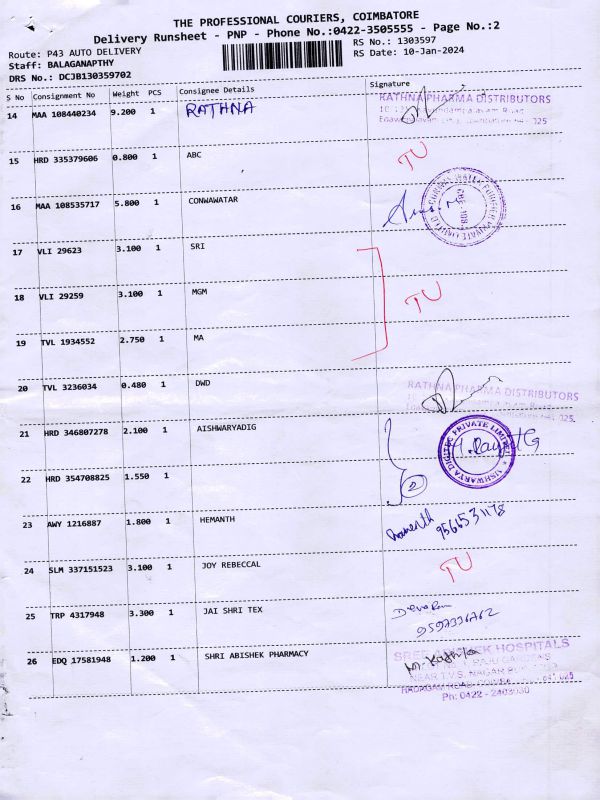 THE PROFESSIONAL COURIERS, COIMBATORE
Delivery Runsheet - PNP - Phone No.:0422-3505555 - Page No.:2
Route: P43 AUTO DELIVERY
RS No.: 1303597
Staff: BALAGANAPTHY
RS Date: 10-Jan-2024
DRS No.: DCJB130359702
S No Consignment No Weight PCS Consignee Details Signature
14 MAA 108440234 9.200 1 RATHNA
RATHNA PHARMA DISTRIBUTORS
15 HRD 335379606 0.800 1 ABC TU
16 MAA 108535717 5.800 1 CONWAWATAR
17 VLI 29623 3.100 1 SRI
18 VLI 29259 3.100 1 MGM TU
19 TVL 1934552 2.750 1 MA
20 TVL 3236034 0.480 1 DWD
RATHNA PHARMA DISTRIBUTORS
21 HRD 346807278 2.100 1 AISHWARYADIG
AISHWARYA DIGITEC PRIVATE LIMITED
22 HRD 354708825 1.550 1 2
23 AWY 1216887 1.800 1 HEMANTH
9566531178
24 SLM 337151523 3.100 1 JOY REBECCAL TU
25 TRP 4317948 3.300 1 JAI SHRI TEX
26 EDQ 17581948 1.200 1 SHRI ABISHEK PHARMACY
HOSPITALS
NEAR T.V.S. NAGAR
Ph: 0422 - 2403030